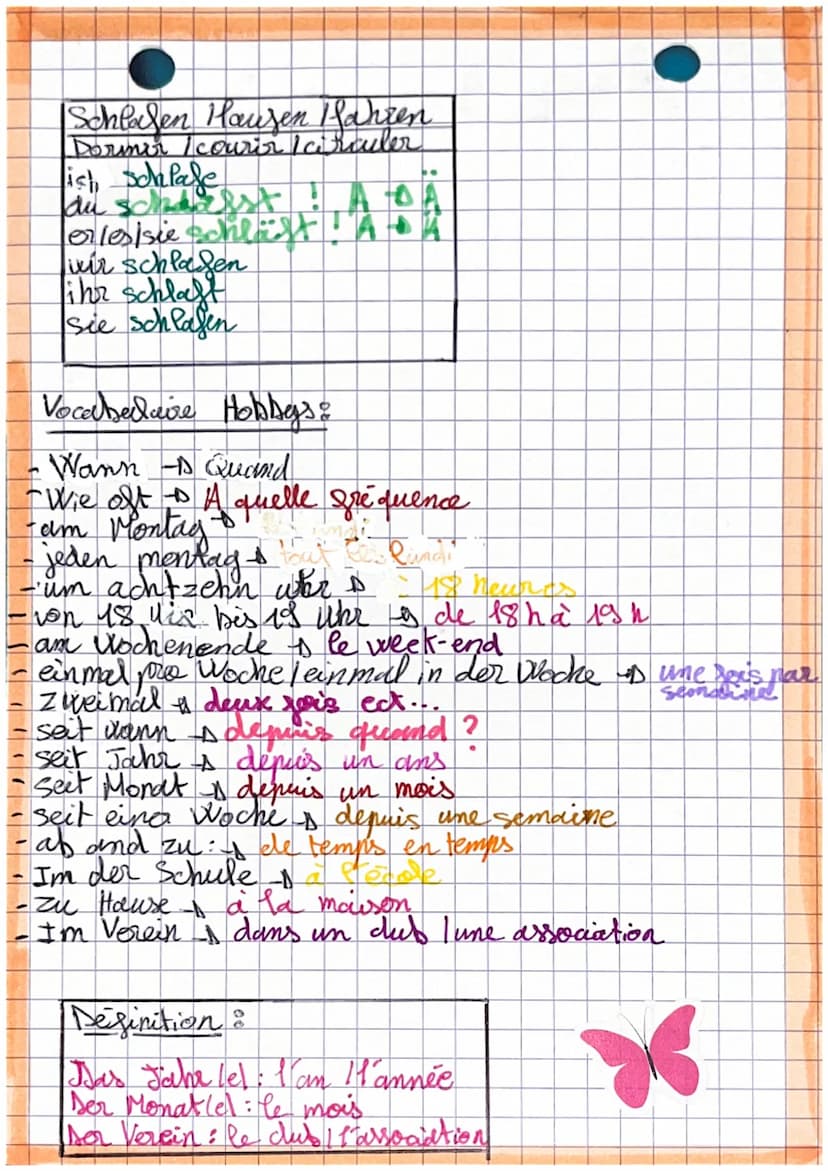 Schlafen / laufen / fahren
Dormir / courir / circuler
ich schlafe
du schläfst ! A → Ä
er/es/sie schläft ! A → Ä
wir schlafen
ihr schlaft
sie schlafen
Vocabulaire Hobbys :
- Wann → Quand
- Wie oft → A quelle fréquence
- am Montag →
- jeden montag → tout les lundi
- um achtzehn uhr → 18 heures
- von 18 Uhr bis 19 Uhr → de 18h à 19h
- am Wochenende → le week-end
- einmal pro Woche / einmal in der Woche → une fois par semaine
- Zweimal → deux fois ect...
- seit wann → depuis quand ?
- seit Jahr → depuis un ans
- seit Monat → depuis un mois
- seit einer Woche → depuis une semaine
- ab and zu : → de temps en temps
- Im der Schule → à l'école
- zu Hause → à la maison
- Im Verein → dans un club / une association
Définition :
Das Jahr (e) : l'an / l'année
Der Monat (e) : le mois
Der Verein : le club / l'association